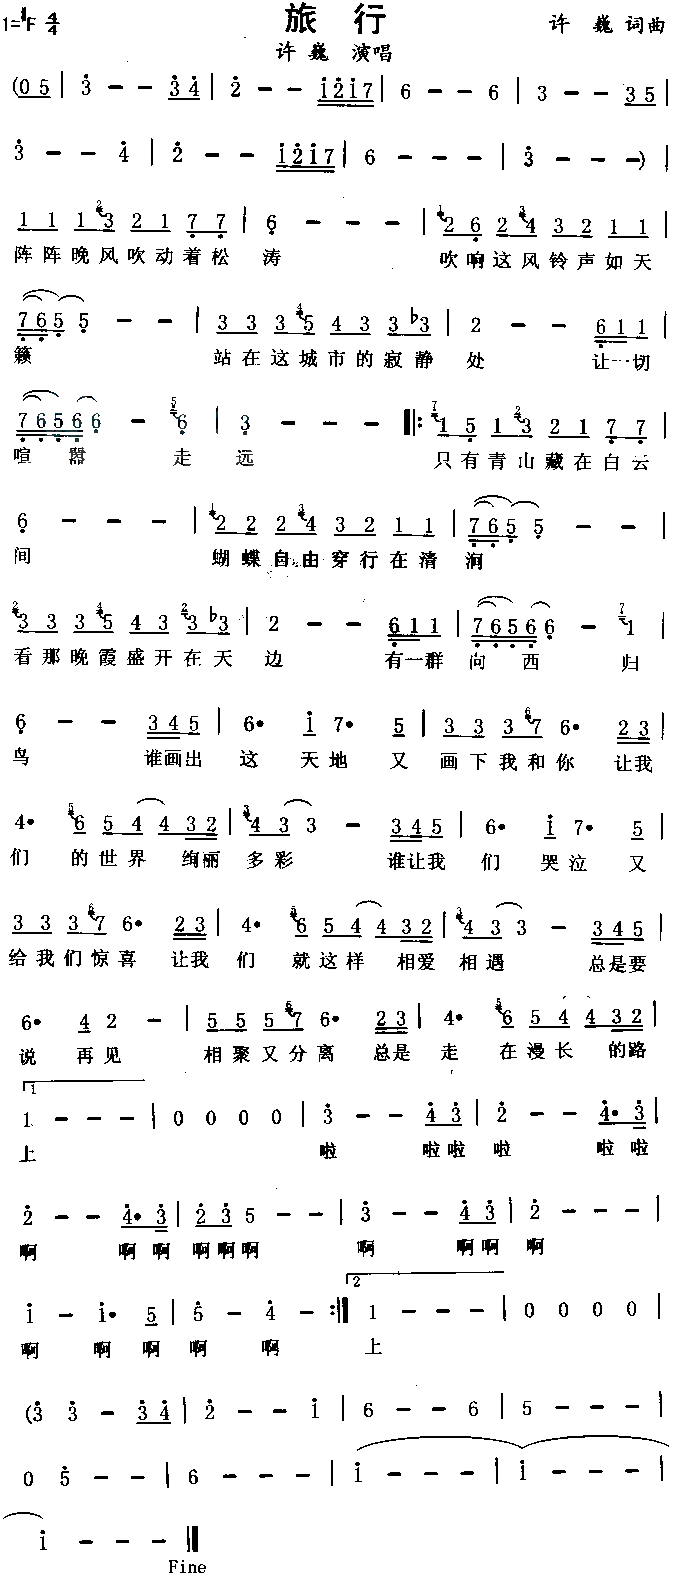 旅 行
1=♯F 4/4
许 巍 词曲
许 巍 演唱
(0 5 | 3 - - 3 4 | 2 - - 1 2 1 7 | 6 - - 6 | 3 - - 3 5 |
3 - - 4 | 2 - - 1 2 1 7 | 6 - - - | 3 - - - ) |
1 1 1 3 2 1 7 7 | 6 - - - | 2 6 2 3 3 2 1 1 |
阵阵晚风吹动着松 涛 吹响这风铃声如天
7 6 5 5 5 - - | 3 3 3 5 4 3 3 ♭3 | 2 - - 6 1 1 |
籁 站在这城市的寂静处 让一切
7 6 5 6 6 - 6 | 3 - - - ‖: 1 5 1 3 2 1 7 7 |
喧 嚣 走 远 只有青山藏在白云
6 - - - | 2 2 2 4 3 2 1 1 | 7 6 5 5 5 - - |
间 蝴蝶自由穿行在清 涧
3 3 3 5 4 3 3 ♭3 | 2 - - 6 1 1 | 7 6 5 6 6 - 1 |
看那晚霞盛开在天 边 有一群 向 西 归
6 - - 3 4 5 | 6• 1 7• 5 | 3 3 3 7 6• 2 3 |
鸟 谁画出 这 天地 又 画下我和你 让我
4• 6 5 4 4 3 2 | 4 3 3 - 3 4 5 | 6• 1 7• 5 |
们 的世界 绚丽 多彩 谁让我 们 哭泣 又
3 3 3 7 6• 2 3 | 4• 6 5 4 4 3 2 | 4 3 3 - 3 4 5 |
给我们惊喜 让我 们 就这样 相爱 相遇 总是要
6• 4 2 - | 5 5 5 7 6• 2 3 | 4• 6 5 4 4 3 2 |
说 再见 相聚又分离 总是 走 在漫长 的路
1
1 - - - | 0 0 0 0 | 3 - - 4 3 | 2 - - 4• 3 |
上 啦 啦啦 啦 啦啦
2 - - 4• 3 | 2 3 5 - - | 3 - - 4 3 | 2 - - - |
啊 啊啊 啊啊啊 啊 啊啊 啊
2
1 - 1• 5 | 5 - 4 - :‖ 1 - - - | 0 0 0 0 |
啊 啊 啊 啊 啊 上
(3 3 - 3 4 | 2 - - 1 | 6 - - 6 | 5 - - - |
0 5 - - | 6 - - - | 1 - - - | 1 - - - |
1 - - - ‖
Fine